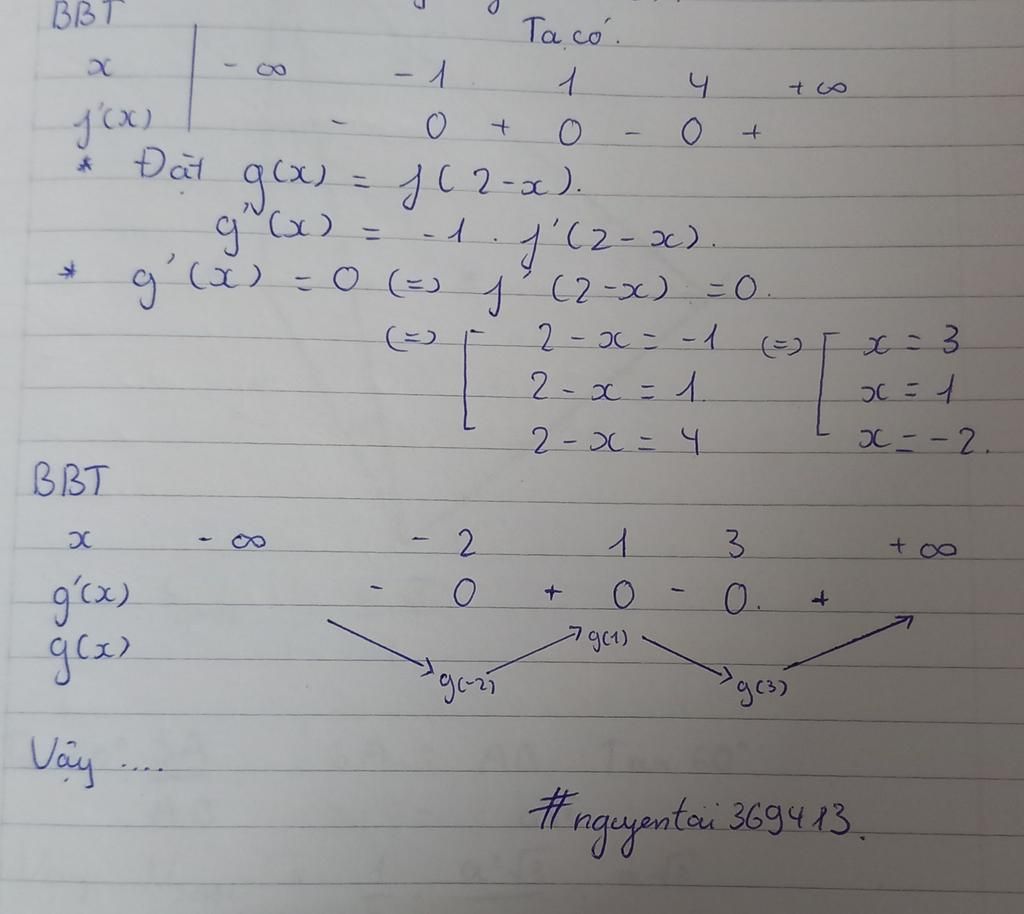 BBT
Ta có.
x - ∞ - 1 1 4 + ∞
f'(x) - 0 + 0 - 0 +
* Đặt g(x) = f(2-x).
g'(x) = -1 . f'(2-x).
* g'(x) = 0 (=) f'(2-x) = 0.
(=) [ 2 - x = -1 (=) [ x = 3
2 - x = 1. x = 1
2 - x = 4 x = -2.
BBT
x - ∞ - 2 1 3 + ∞
g'(x) - 0 + 0 - 0. +
g(x) ↘ g(-2) ↗ g(1) ↘ g(3) ↗
Vậy ....
#nguyentai369413.